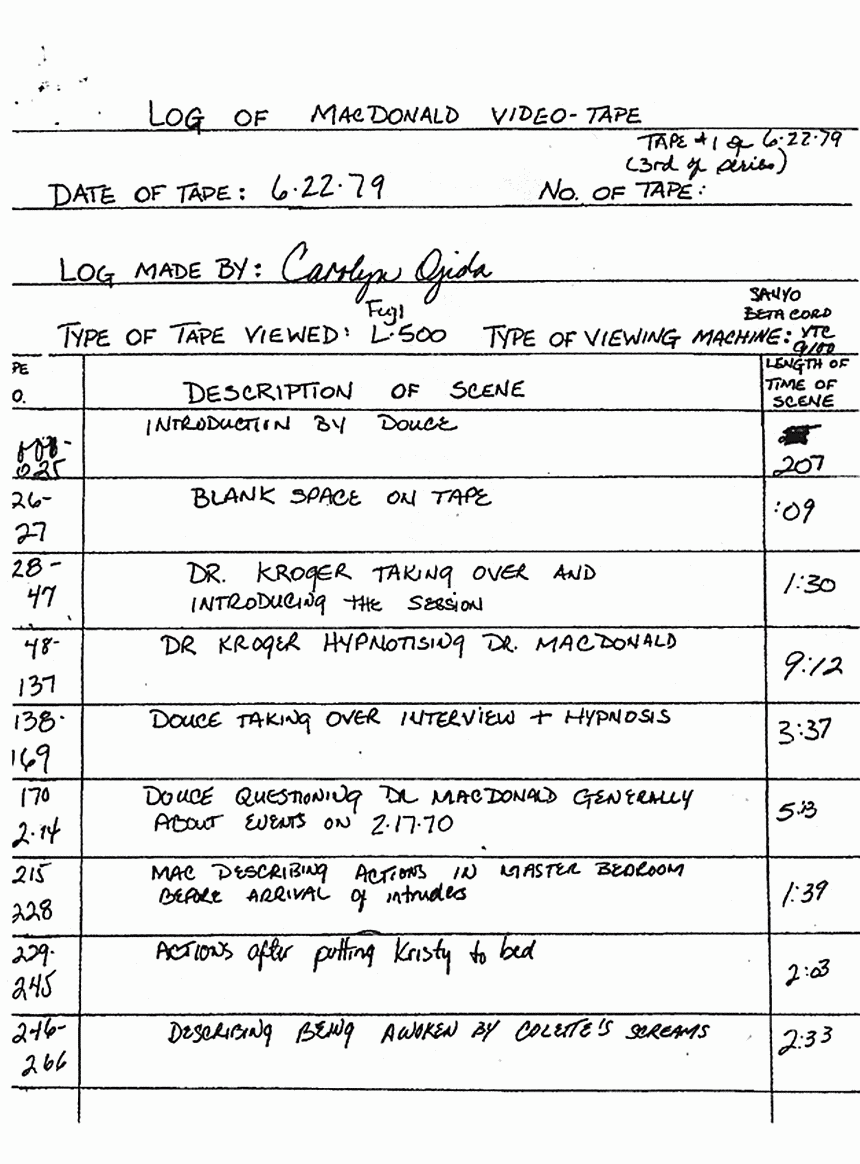 LOG OF MACDONALD VIDEO-TAPE
TAPE #1 of 6·22·79
(3rd of series)
DATE OF TAPE: 6·22·79 NO. OF TAPE:
LOG MADE BY: Carolyn Ojida
SANYO
BETA CORD
Fuji
TYPE OF TAPE VIEWED: L-500 TYPE OF VIEWING MACHINE: VTC
9100
PE
O.
DESCRIPTION OF SCENE
LENGTH OF
TIME OF
SCENE
INTRODUCTION BY DOUCE
025
207
26-
27
BLANK SPACE ON TAPE
:09
28-
47
DR. KROGER TAKING OVER AND
INTRODUCING THE SESSION
1:30
48-
137
DR KROGER HYPNOTISING DR. MACDONALD
9:12
138-
169
DOUCE TAKING OVER INTERVIEW + HYPNOSIS
3:37
170
2·14
DOUCE QUESTIONING DR MACDONALD GENERALLY
ABOUT EVENTS ON 2·17·70
215
228
MAC DESCRIBING ACTIONS IN MASTER BEDROOM
BEFORE ARRIVAL of intruders
1:39
229-
245
ACTIONS after putting Kristy to bed
2:03
246-
266
DESCRIBING BEING AWOKEN BY COLETTE'S SCREAMS
2:33